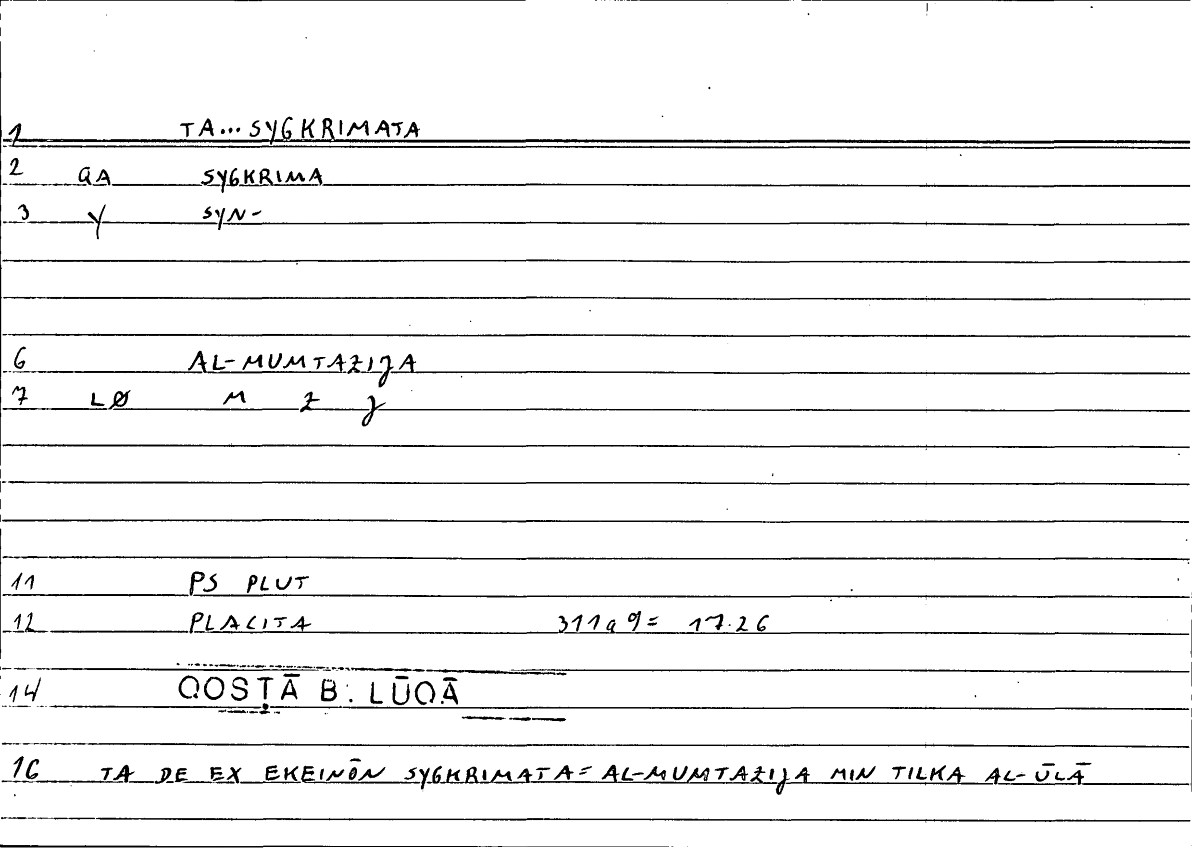 1 TA... SYGKRIMATA
2 GA SYGKRIMA
3 Y SYN-
6 AL-MUMTAZIJA
7 LØ M Z J
11 PS PLUT
12 PLACITA 311a9= 17.26
14 QOSṬĀ B. LŪQĀ
16 TA DE EX EKEINŌN SYGKRIMATA= AL-MUMTAZIJA MIN TILKA AL-ŪLĀ